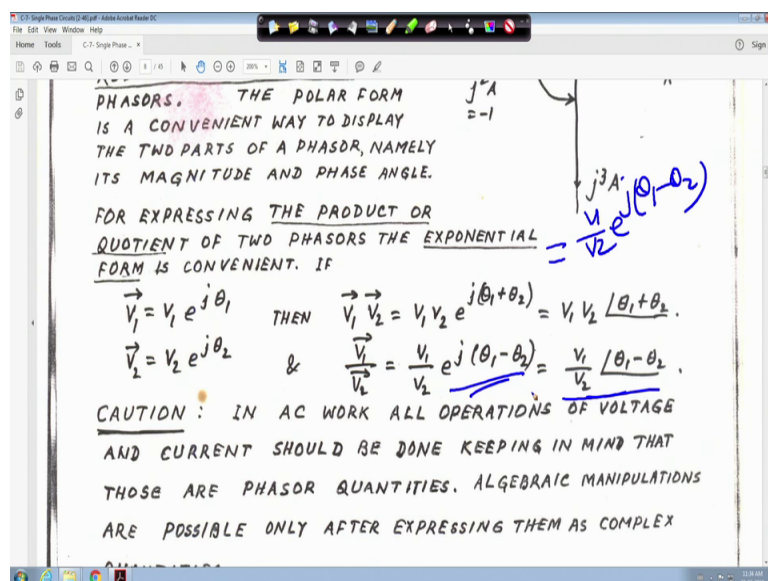 C-7- Single Phase Circuits [2-46].pdf - Adobe Acrobat Reader DC
File Edit View Window Help
Home Tools C-7- Single Phase ... × Sign
8 / 45 200%
PHASORS. THE POLAR FORM
IS A CONVENIENT WAY TO DISPLAY
THE TWO PARTS OF A PHASOR, NAMELY
ITS MAGNITUDE AND PHASE ANGLE.
j²A
=-1
j³A
= V1/V2 e^j(θ1-θ2)
FOR EXPRESSING THE PRODUCT OR
QUOTIENT OF TWO PHASORS THE EXPONENTIAL
FORM IS CONVENIENT. IF
V⃗1 = V1 e^jθ1 THEN V⃗1 V⃗2 = V1 V2 e^j(θ1+θ2) = V1 V2 ∠θ1+θ2 .
V⃗2 = V2 e^jθ2 & V⃗1/V⃗2 = V1/V2 e^j(θ1-θ2) = V1/V2 ∠θ1-θ2 .
CAUTION : IN AC WORK ALL OPERATIONS OF VOLTAGE
AND CURRENT SHOULD BE DONE KEEPING IN MIND THAT
THOSE ARE PHASOR QUANTITIES. ALGEBRAIC MANIPULATIONS
ARE POSSIBLE ONLY AFTER EXPRESSING THEM AS COMPLEX
11:34 AM